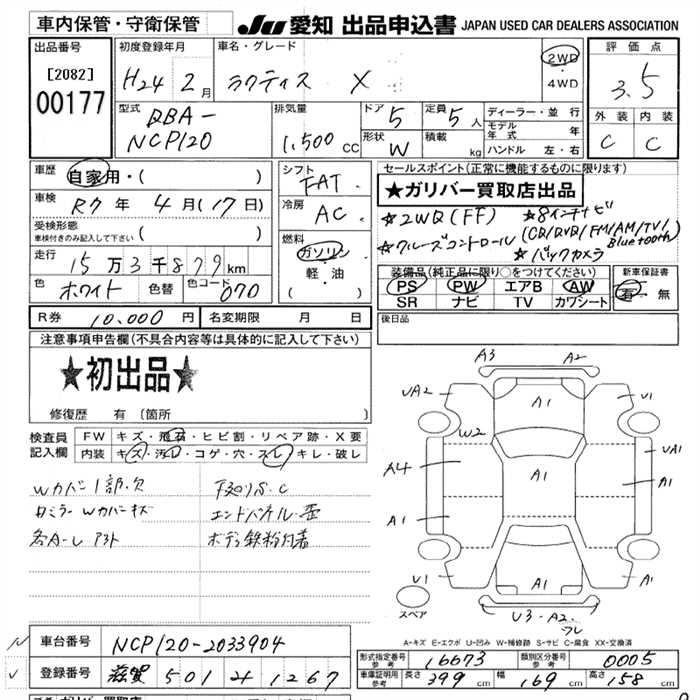 車内保管・守衛保管
JU 愛知 出品申込書 JAPAN USED CAR DEALERS ASSOCIATION
出品番号
[2082]
00177
初度登録年月
H24 2月
車名・グレード
ラクティス X
2WD
・
4WD
評価点
3.5
外装 内装
C C
型式
DBA-
NCP120
排気量
1,500 cc
ドア 5
形状 W
定員 5人
積載 kg
ディーラー・並行
モデル年式 年
ハンドル 左・右
車歴 自家用・( )
車検 R7年 4月(17日)
受検形態
車検付きのみ記入して下さい ( )
走行 15万3千879km
色 ホワイト 色替 色コード 070
シフト
FAT
冷房
AC
燃料
ガソリン
・
軽・油
( )
セールスポイント(正常に機能するものに限ります)
★ガリバー買取店出品
☆2WD(FF) ☆8インチナビ
(CD/DVD/FM/AM/TV/Bluetooth)
☆クルーズコントロール
☆バックカメラ
装備品(純正品に限り○をつけてください)
PS PW エアB AW
SR ナビ TV カワシート
新車保証書
有・無
R券 10,000円 名変期限 月 日
後日品
注意事項申告欄(不具合内容等は具体的に記入して下さい)
★初出品★
修復歴 有 〔箇所 〕
検査員記入欄
FW キズ・飛石・ヒビ割・リペア跡・X要
内装 キズ・汚れ・コゲ・穴・スレ・キレ・破レ
Wカバー1部欠 下廻りS.C
ロミラーWカバーキズ エンドパネル歪
各A-U アト ボディ鉄粉付着
A3 A2
UA2 A1 U1
W2 UA1
A4 A1
A1 A1
U1 A1 A1
スペア
U3-A2
スレ
A-キズ E-エクボ U-凹み W-補修跡 S-サビ C-腐食 XX-交換済
車台番号 NCP120-2033904
登録番号 滋賀 501 す 1267
形式指定番号 参考 16673 類別区分番号 参考 0005
車庫証明用 参考 長さ 399cm 幅 169cm 高さ 158cm